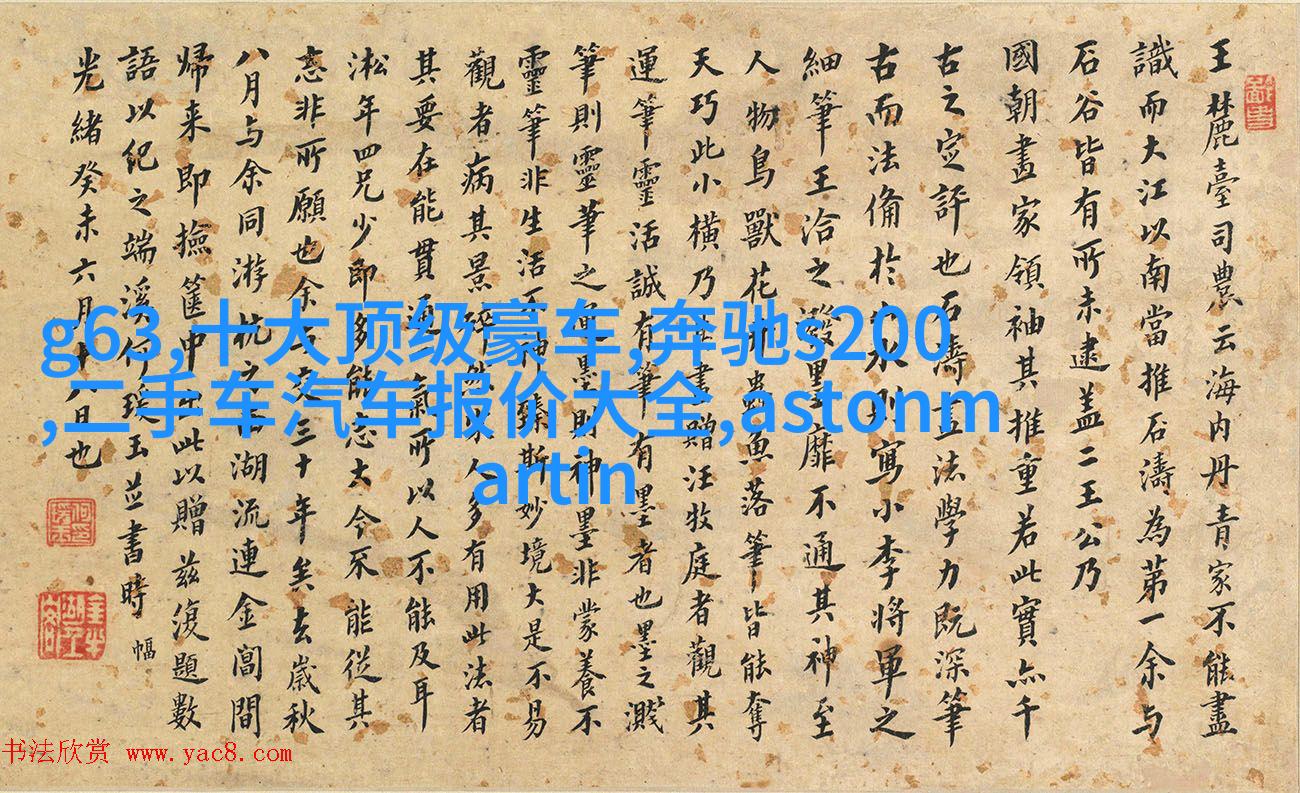 王麓臺司農云海内丹青家不能盡
識而大江以南當推石濤為第一余与
石谷皆有所未逮盖二王公乃
國朝畫家領袖其推重若此實点千
古之定評也石濤立法學力既深筆
古而法備於山水則寫小李將軍之
細筆王洽之潑墨靡不通其神至
人物鳥獸花卉蟲魚落筆皆能奪
天巧此小横乃其畫贈汪牧庭者觀其
運筆靈活誠有筆有墨者也墨之濺
筆則靈筆之運墨財神墨非蒙養不
靈筆非生活不神臻斯妙境大是不易
觀者病其景碎然以人多有用此法者
其要在能貫通氣所以人不能及耳
淞年四兄少即多能志太今不能從其
志非所願也余与交三十年矣去歲秋
八月与余同游杭之西湖流連金閶間
帰来即撿篋中此以贈兹復題數
語以纪之端溪何瑗玉並書時
幅
光緒癸未六月十八日也
g63,十大顶级豪车,奔驰s200
,二手车汽车报价大全,astonm
artin
书法欣赏 www.yac8.com